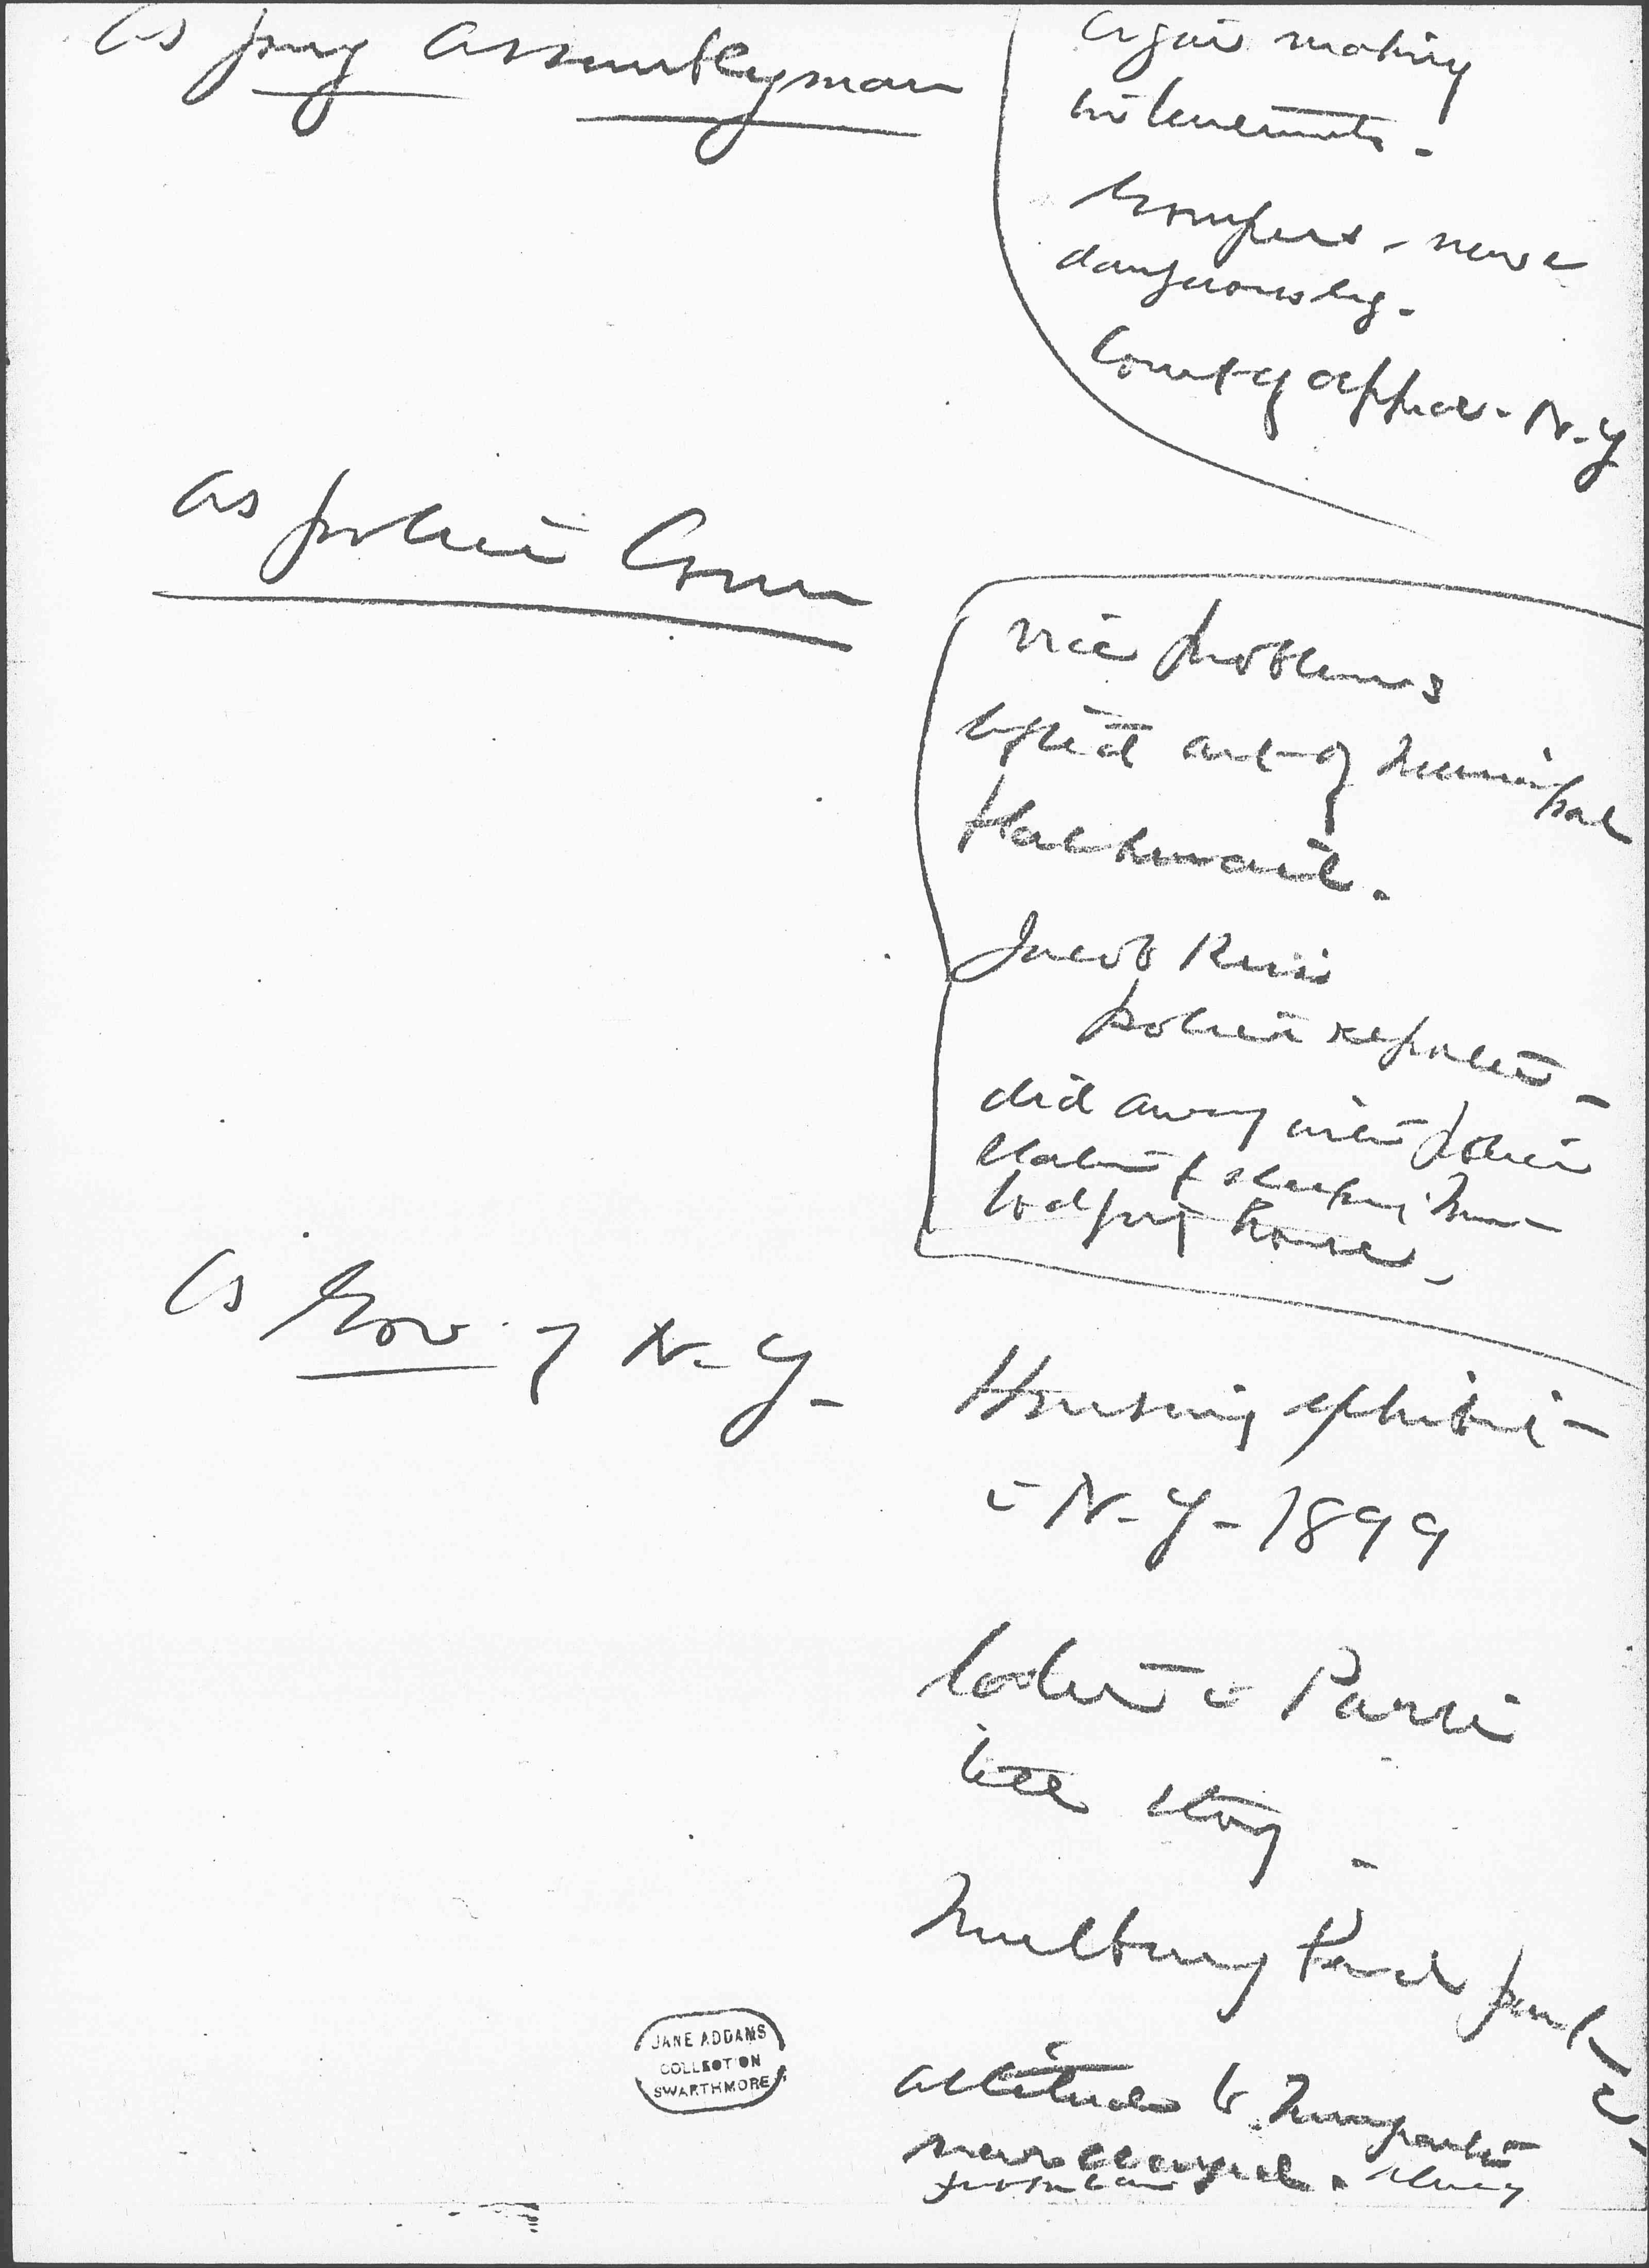 As young Assemblyman
Cigar making
in tenements -
Gompers - never
dangerously -
Court of appeals - N-Y
as police Comm
vice problems
lyriest art of Municipal
blackmail.
Jacob Riis
police reporter -
did away with police
station & sleeping
lodging house -
As Gov. of N-Y-
Housing exhibit -
in N-Y-1899
in Paris
tell story -
Mulberry Bend park -
attitude to Immigrants
never changed.
JANE ADDAMS
COLLECTION
SWARTHMORE